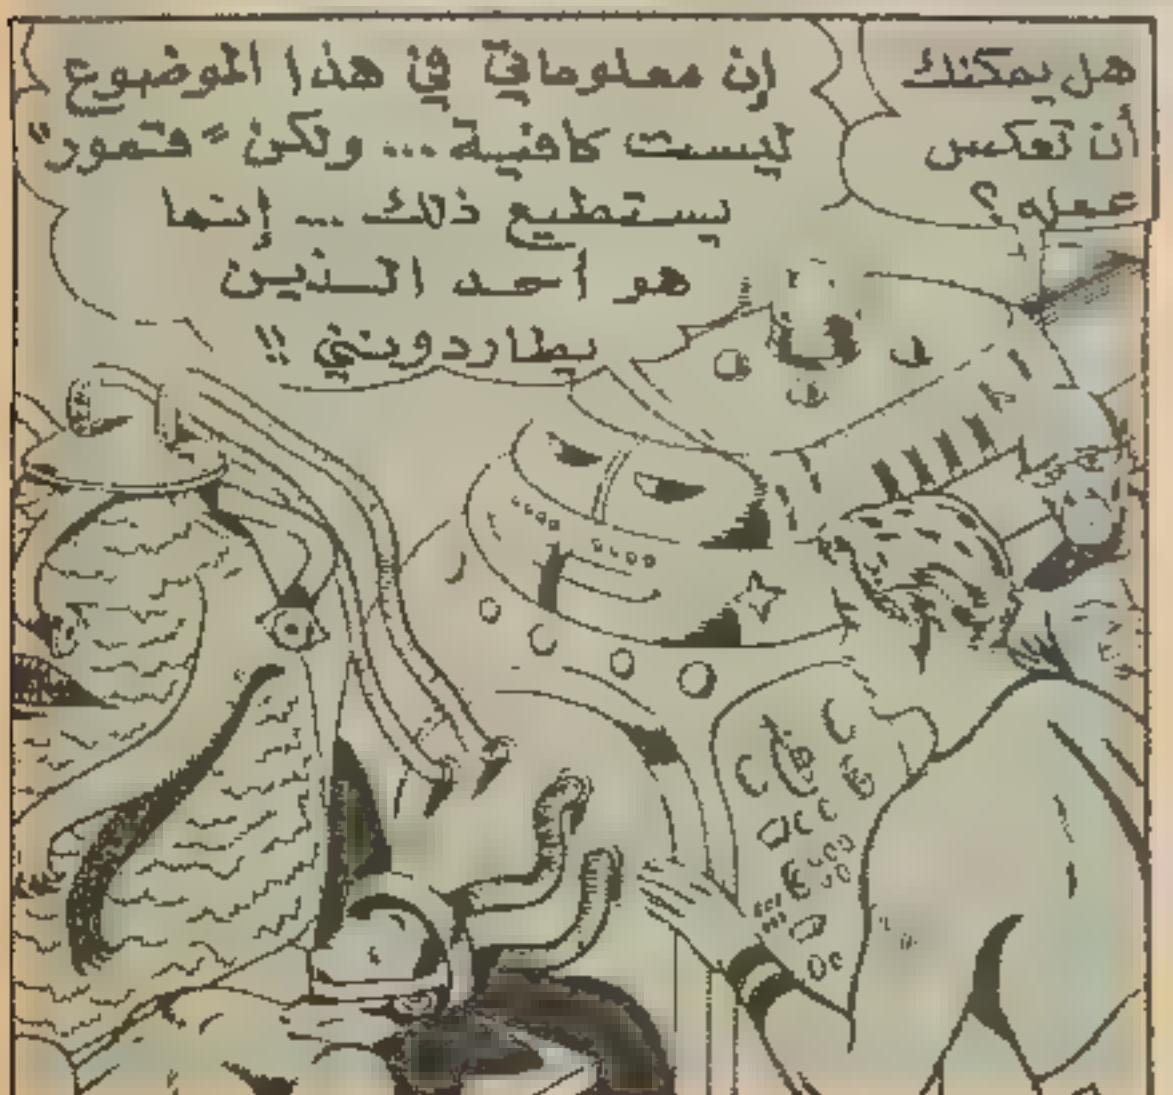 هل يمكنك
أن تعكس
عمله ؟
إن معلوماتي في هذا الموضوع
ليست كافية ... ولكن "قتمور"
يستطيع ذلك ... إنما
هو أحد الذين
يطاردونني !!